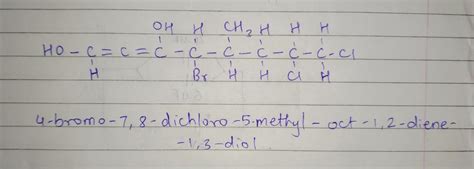 OH H CH₃ H H H
HO - C = C = C - C - C - C - C - C - Cl
H Br H H Cl H
4-bromo-7,8-dichloro-5-methyl-oct-1,2-diene-
-1,3-diol